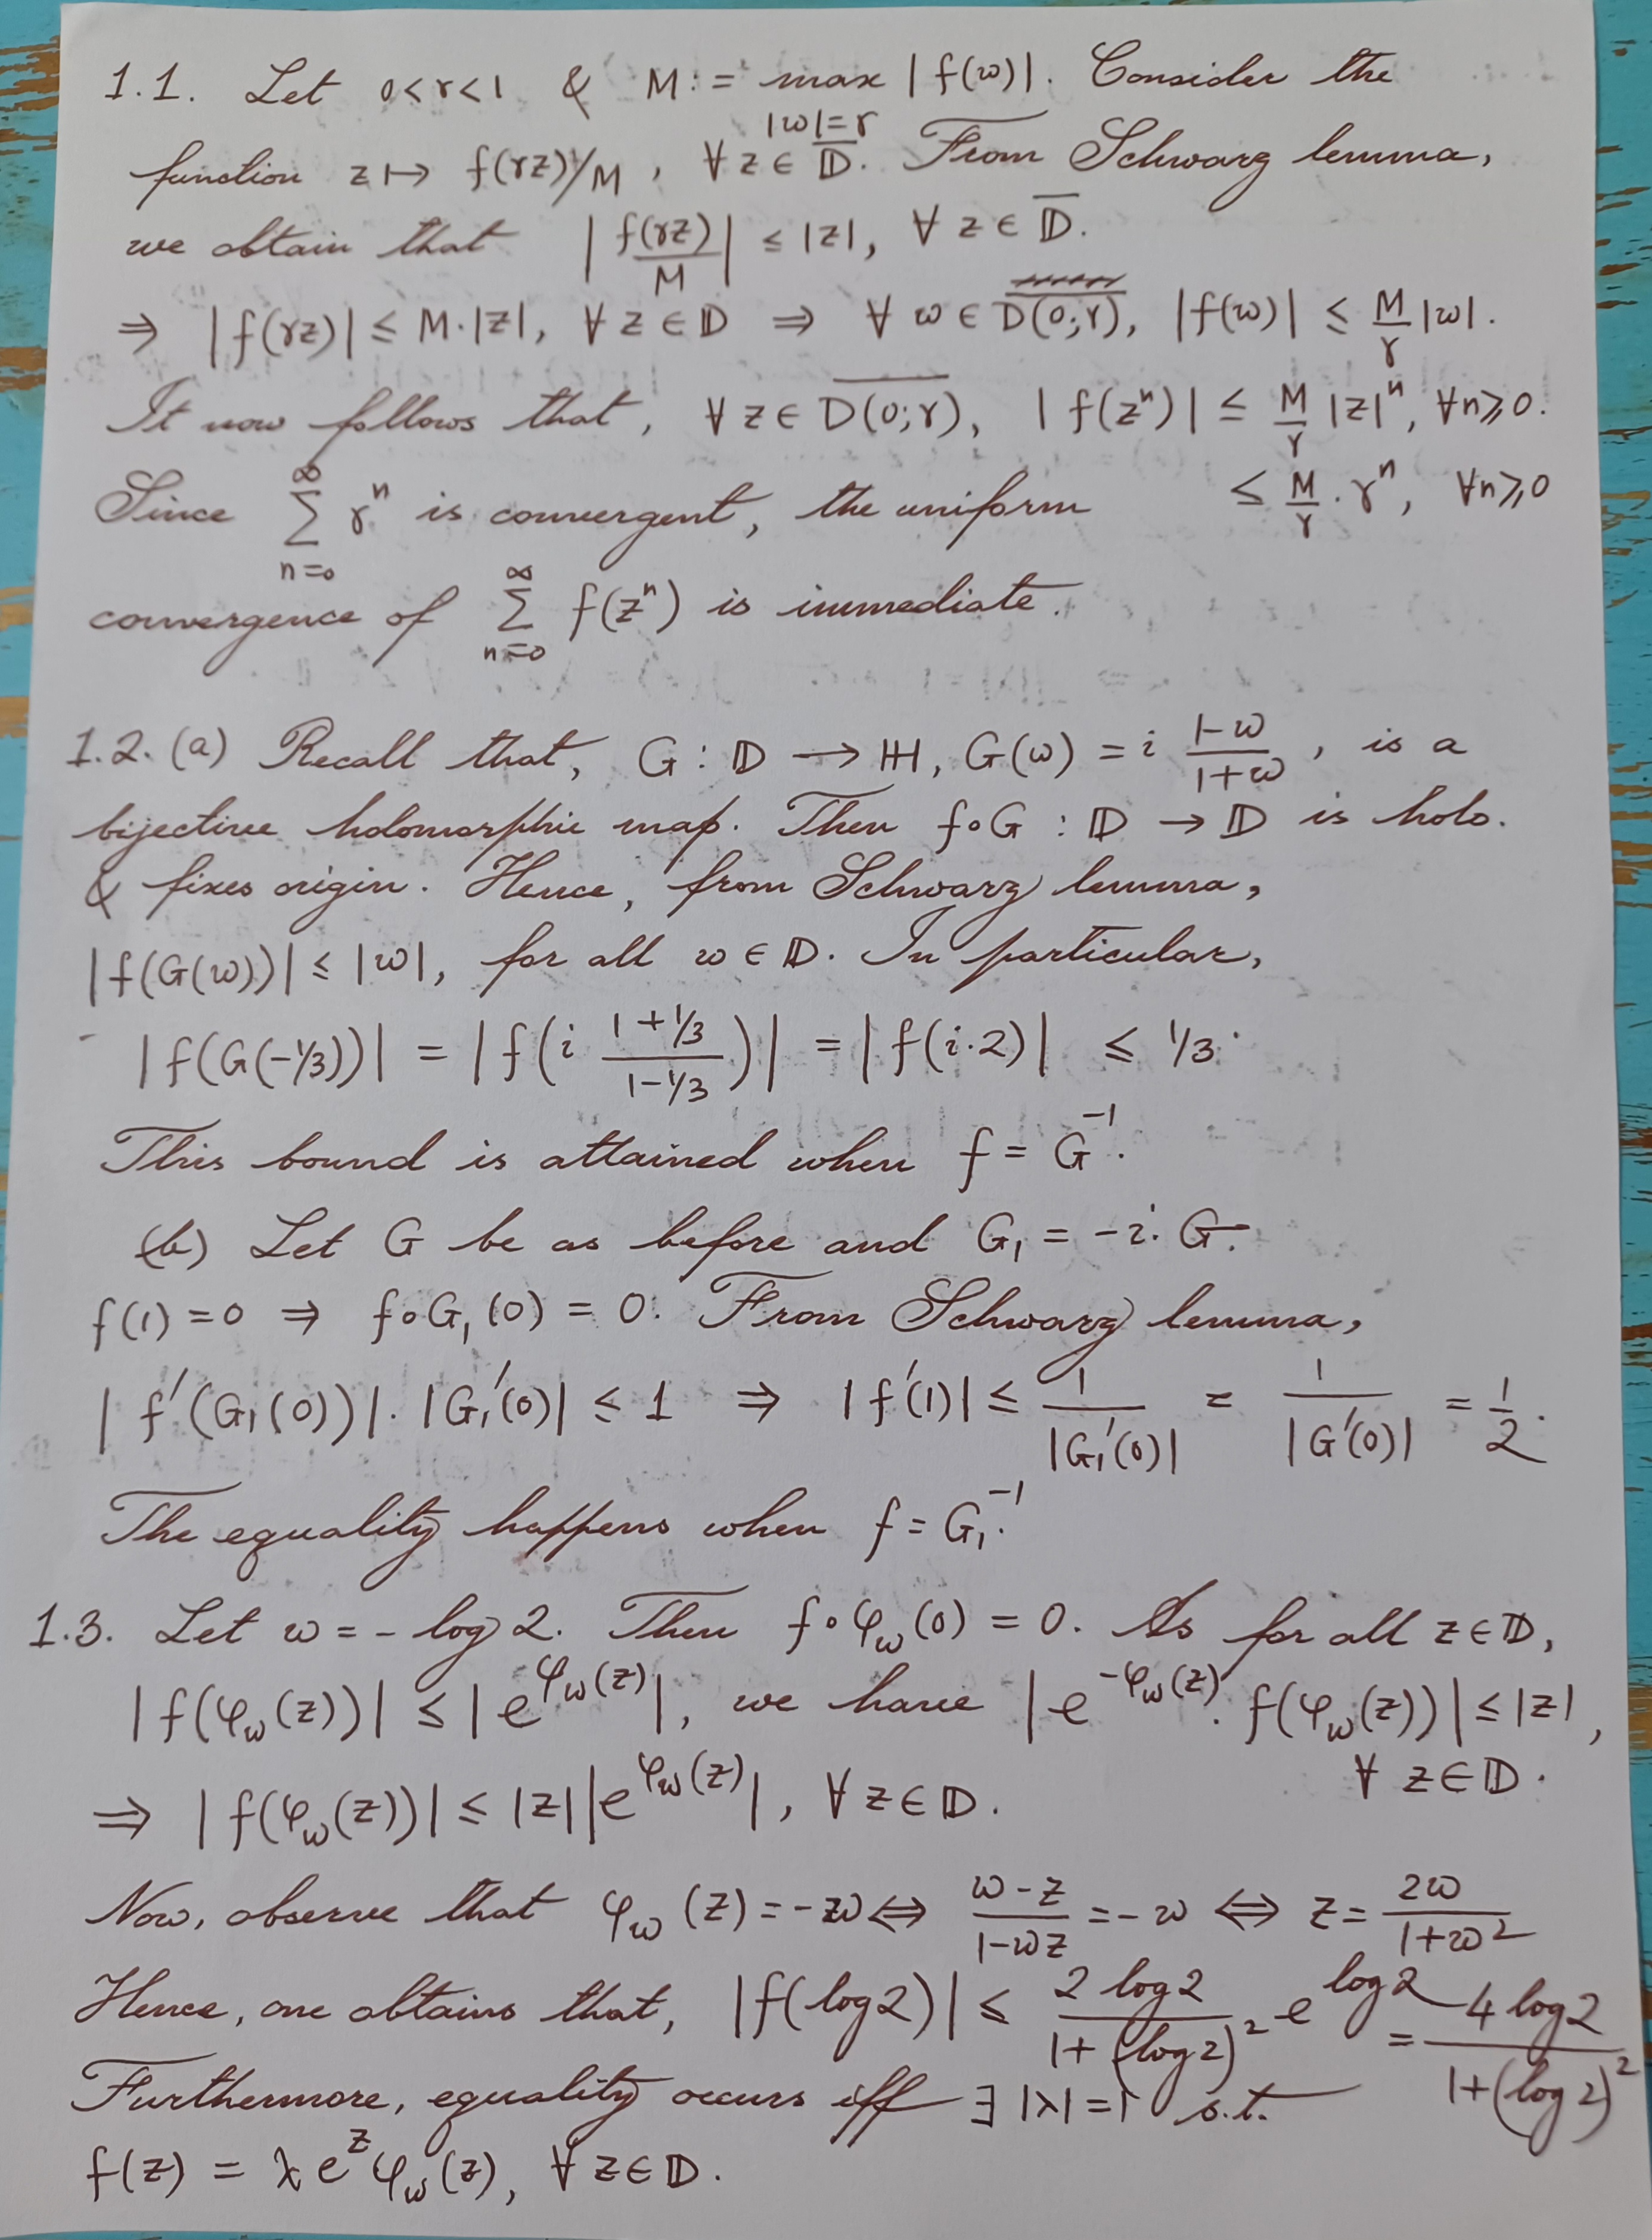 1.1. Let 0<r<1 & M := max_{|w|=r} |f(w)|. Consider the
function z ↦ f(rz)/M, ∀ z ∈ \overline{𝔻}. From Schwarz lemma,
we obtain that |f(rz)/M| ≤ |z|, ∀ z ∈ \overline{𝔻}.
⇒ |f(rz)| ≤ M·|z|, ∀ z ∈ 𝔻 ⇒ ∀ w ∈ \overline{D(0;r)}, |f(w)| ≤ \frac{M}{r} |w|.
It now follows that, ∀ z ∈ \overline{D(0;r)}, |f(z^n)| ≤ \frac{M}{r} |z|^n, ∀n≥0.
Since \sum_{n=0}^{∞} r^n is convergent, the uniform ≤ \frac{M}{r} · r^n, ∀n≥0
convergence of \sum_{n=0}^{∞} f(z^n) is immediate.
1.2. (a) Recall that, G : 𝔻 → ℍ, G(w) = i \frac{1-w}{1+w}, is a
bijective holomorphic map. Then f∘G : 𝔻 → 𝔻 is holo.
& fixes origin. Hence, from Schwarz lemma,
|f(G(w))| ≤ |w|, for all w ∈ 𝔻. In particular,
|f(G(-1/3))| = |f(i \frac{1+1/3}{1-1/3})| = |f(i·2)| ≤ 1/3.
This bound is attained when f = G^{-1}.
(b) Let G be as before and G_1 = -i·G.
f(1)=0 ⇒ f∘G_1(0) = 0. From Schwarz lemma,
|f'(G_1(0))|·|G_1'(0)| ≤ 1 ⇒ |f'(1)| ≤ \frac{1}{|G_1'(0)|} = \frac{1}{|G'(0)|} = \frac{1}{2}.
The equality happens when f = G_1^{-1}.
1.3. Let w = - log 2. Then f∘φ_w(0) = 0. As for all z ∈ 𝔻,
|f(φ_w(z))| ≤ |e^{φ_w(z)}|, we have |e^{-φ_w(z)}· f(φ_w(z))| ≤ |z|,
∀ z ∈ 𝔻.
⇒ |f(φ_w(z))| ≤ |z||e^{φ_w(z)}|, ∀ z ∈ 𝔻.
Now, observe that φ_w(z) = -w ⇔ \frac{w-z}{1-wz} = -w ⇔ z = \frac{2w}{1+w^2}
Hence, one obtains that, |f(log 2)| ≤ \frac{2 log 2}{1+(log 2)^2} e^{log 2} = \frac{4 log 2}{1+(log 2)^2}
Furthermore, equality occurs iff ∃ |λ|=1 s.t.
f(z) = λ e^z φ_w(z), ∀ z ∈ 𝔻.